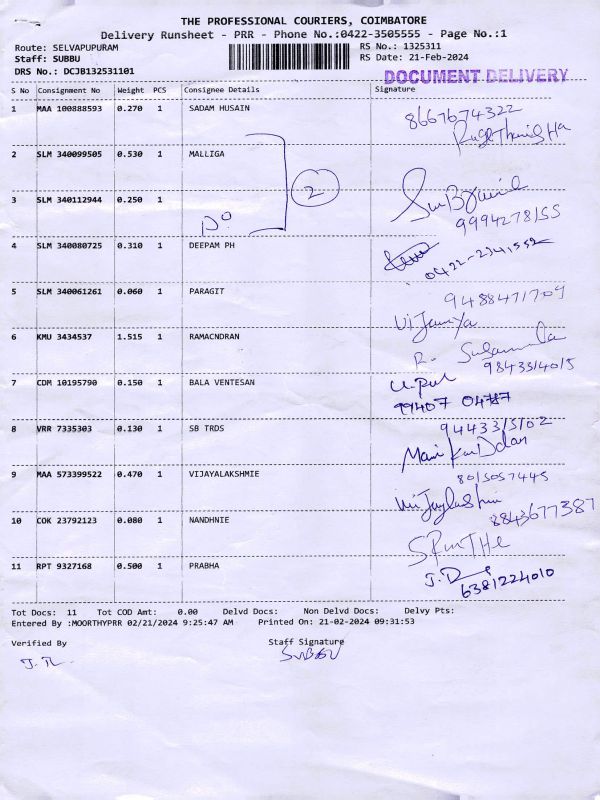 THE PROFESSIONAL COURIERS, COIMBATORE
Delivery Runsheet - PRR - Phone No.:0422-3505555 - Page No.:1
Route: SELVAPUPURAM RS No.: 1325311
Staff: SUBBU RS Date: 21-Feb-2024
DRS No.: DCJB132531101 DOCUMENT DELIVERY
S No Consignment No Weight PCS Consignee Details Signature
1 MAA 100888593 0.270 1 SADAM HUSAIN 8667674322
2 SLM 340099505 0.530 1 MALLIGA
2
3 SLM 340112944 0.250 1
Do 9994278155
4 SLM 340080725 0.310 1 DEEPAM PH
0422-2341552
5 SLM 340061261 0.060 1 PARAGIT 9488471709
Vijamya
6 KMU 3434537 1.515 1 RAMACNDRAN
9843314015
7 CDM 10195790 0.150 1 BALA VENTESAN
99407 04787
8 VRR 7335303 0.130 1 SB TRDS 9443315102
9 MAA 573399522 0.470 1 VIJAYALAKSHMIE 8015057445
10 COK 23792123 0.080 1 NANDHNIE 8843677387
11 RPT 9327168 0.500 1 PRABHA
6381224010
Tot Docs: 11 Tot COD Amt: 0.00 Delvd Docs: Non Delvd Docs: Delvy Pts:
Entered By :MOORTHYPRR 02/21/2024 9:25:47 AM Printed On: 21-02-2024 09:31:53
Verified By Staff Signature
SUBBU